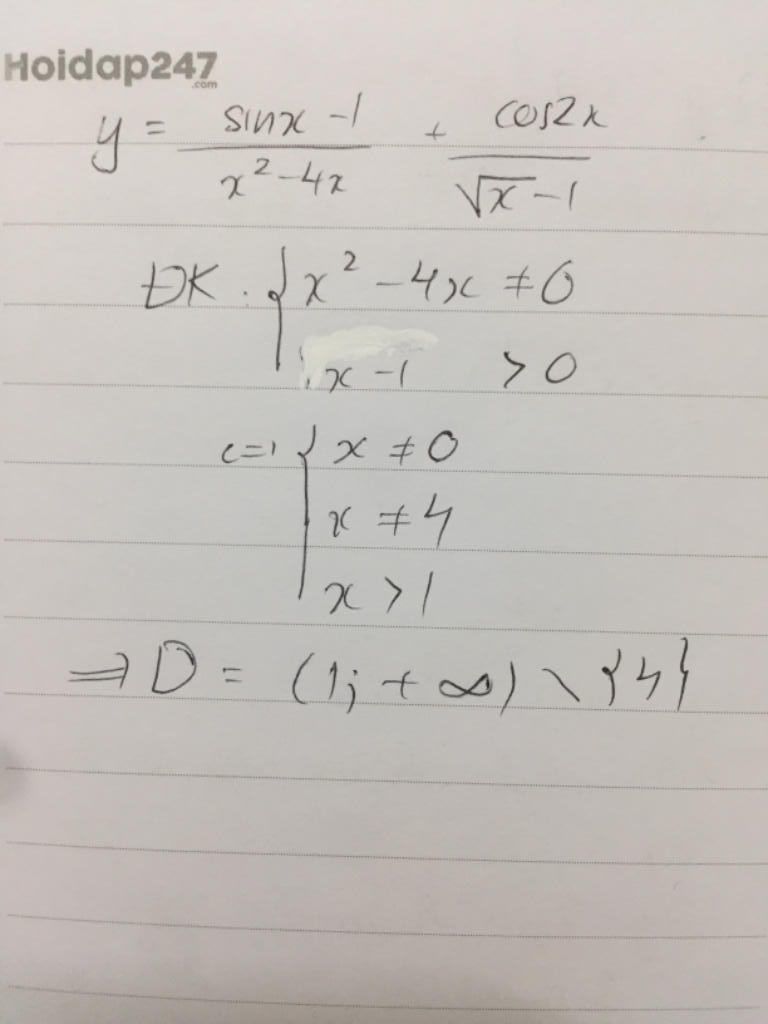 Hoidap247
.com
y = (sinx - 1)/(x² - 4x) + (cos2x)/(√x - 1)
ĐK. { x² - 4x ≠ 0
x - 1 > 0
<=> { x ≠ 0
x ≠ 4
x > 1
=> D = (1; +∞) \ {4}